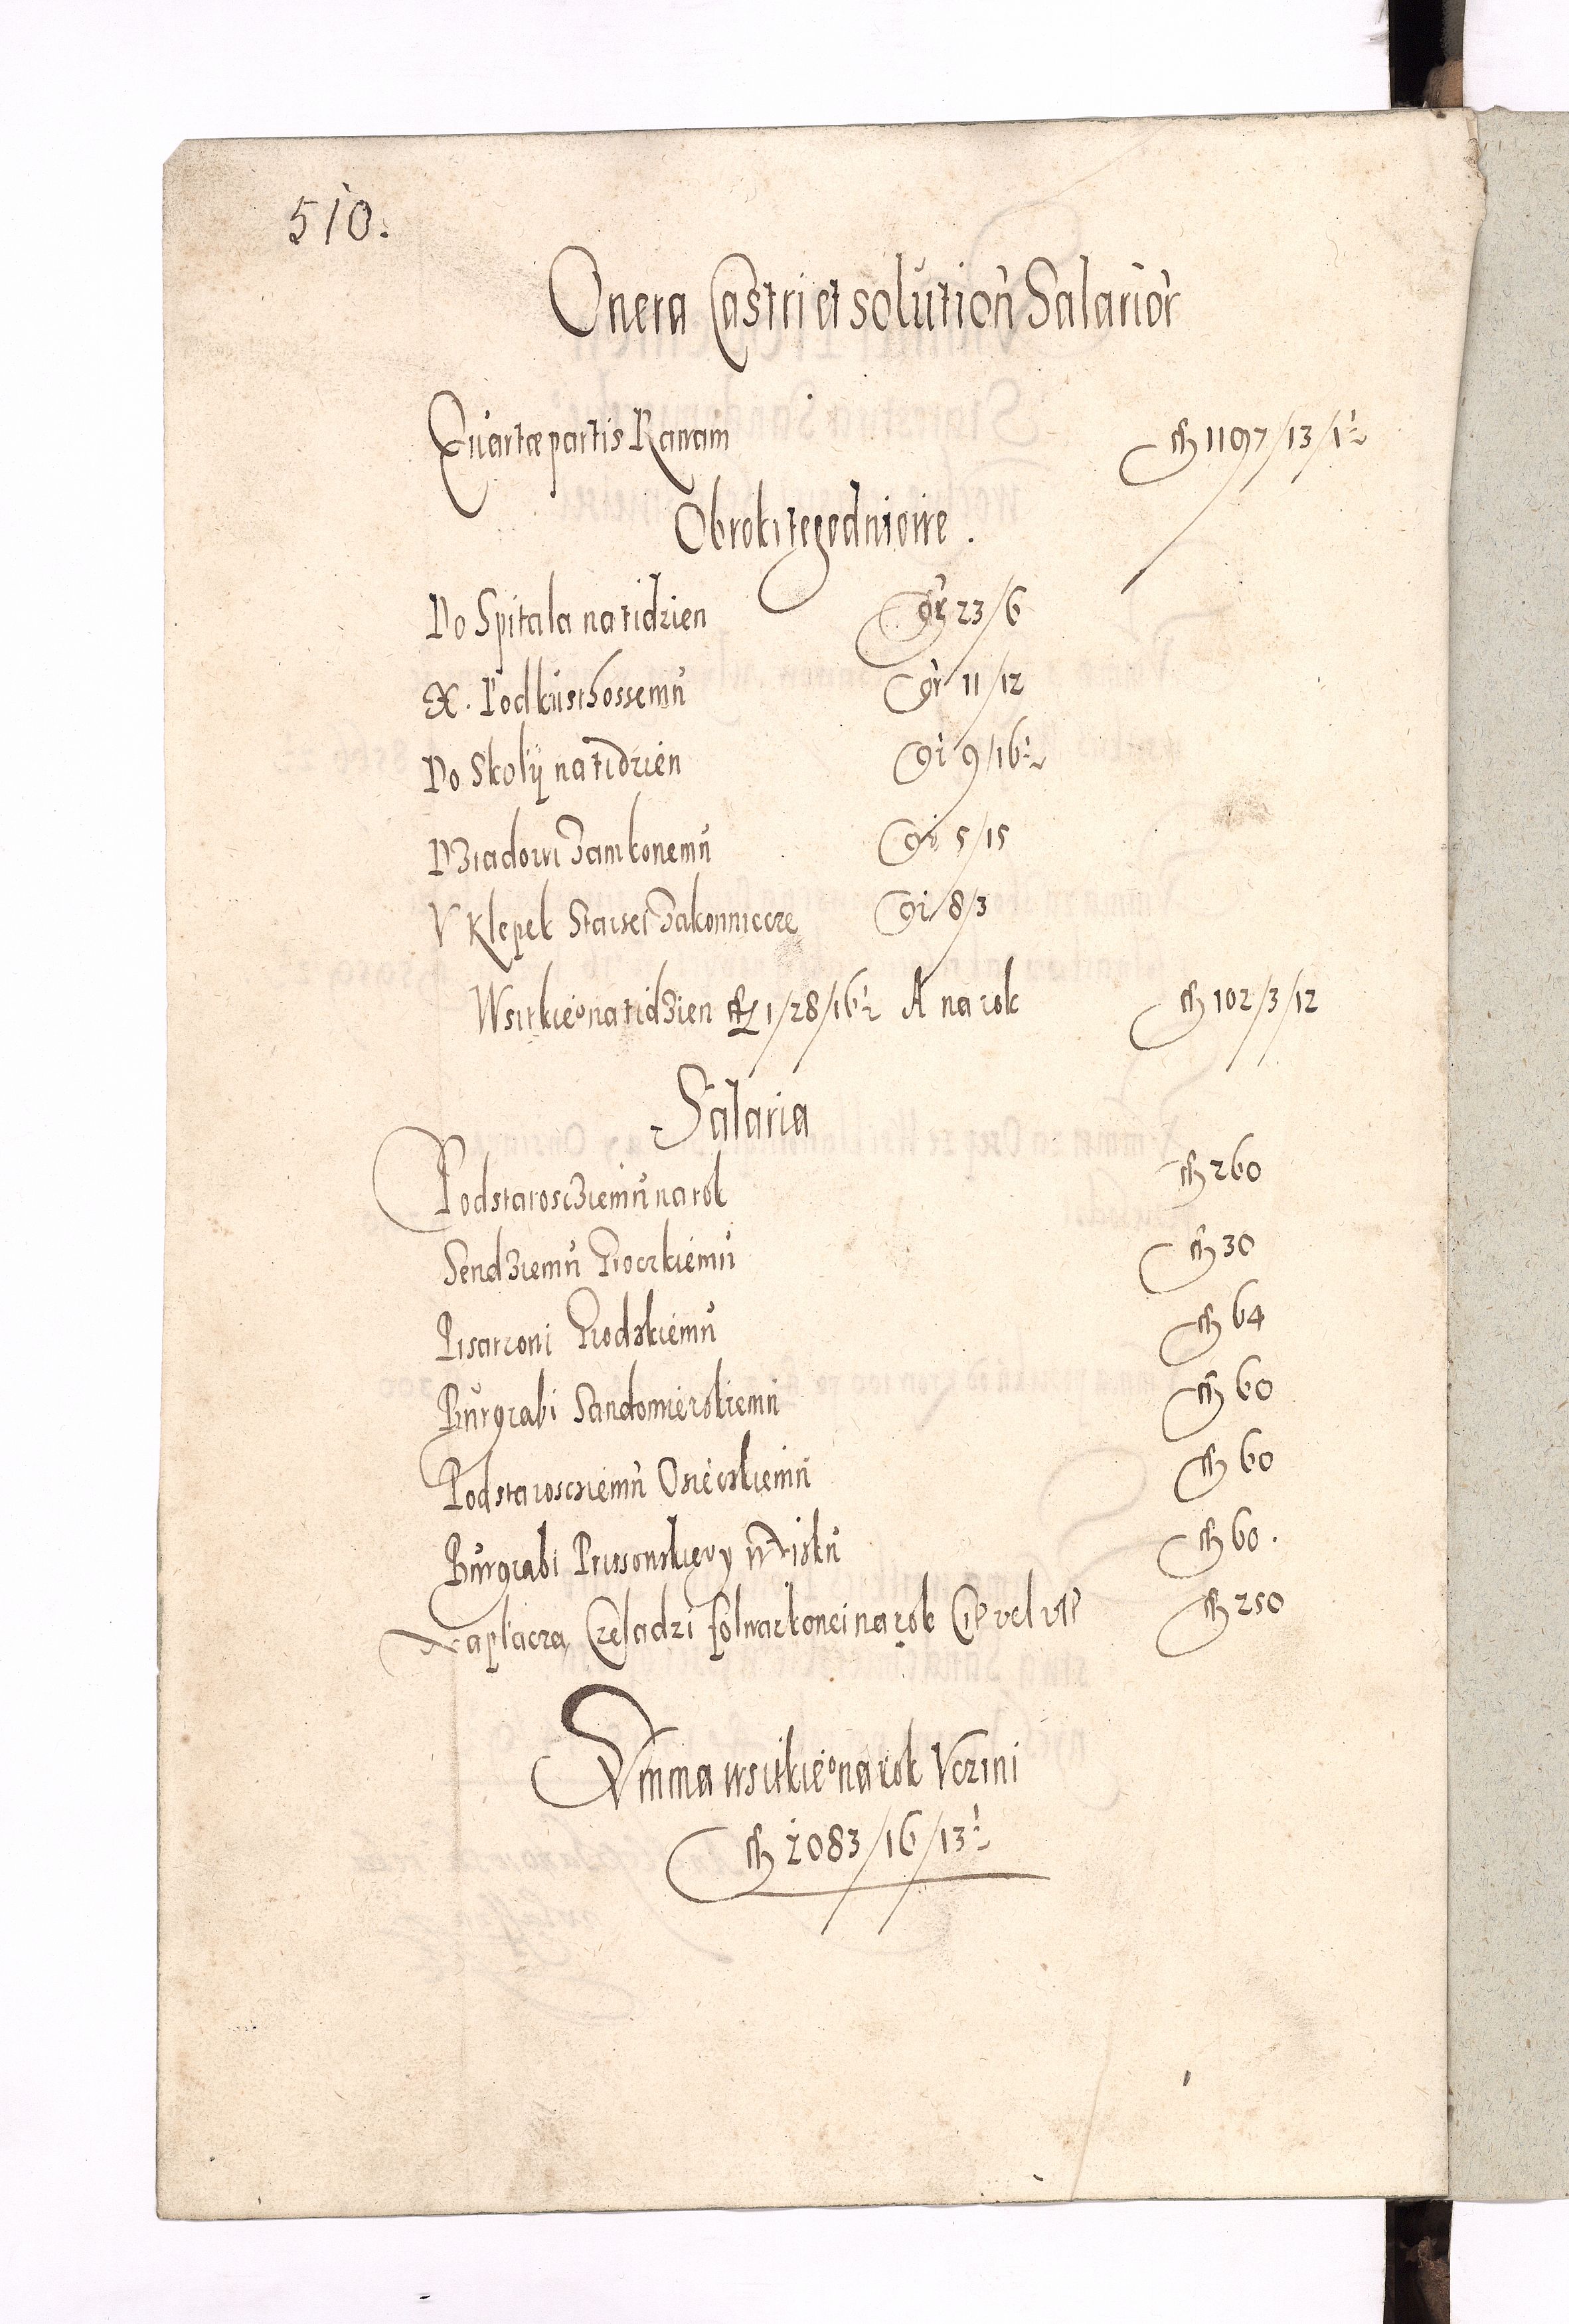 510.
Onera Castri et solution Salarior
Quartæ partis Rawam fl 1197/13/1½
Obroki tegodniowe.
Do Spitala na tidzien gr 23/6
X. Podkusthossemu gr 11/12
Do Skolÿ na tidzien gr 9/16½
Dziadowi Zamkonemu gr 5/15
V Klepek Starsei Zakonnicze gr 8/3
Wsitkieo na tidzien fl 1/28/16½ A na rok fl 102/3/12
Salaria
Podstarosciemu na rok fl 260
Sendziemu Groczkiemu fl 30
Pisarzoni Grodzkiemu fl 64
Burgrabi Sandomierskiemu fl 60
Podstarosciemu Osieczkiemu fl 60
Burgrabi fl 60.
Zaplacza Czeladzi folwarkonei na rok vel fl 250
Summa wsitkieo na rok Vczini
fl 2083/16/13½